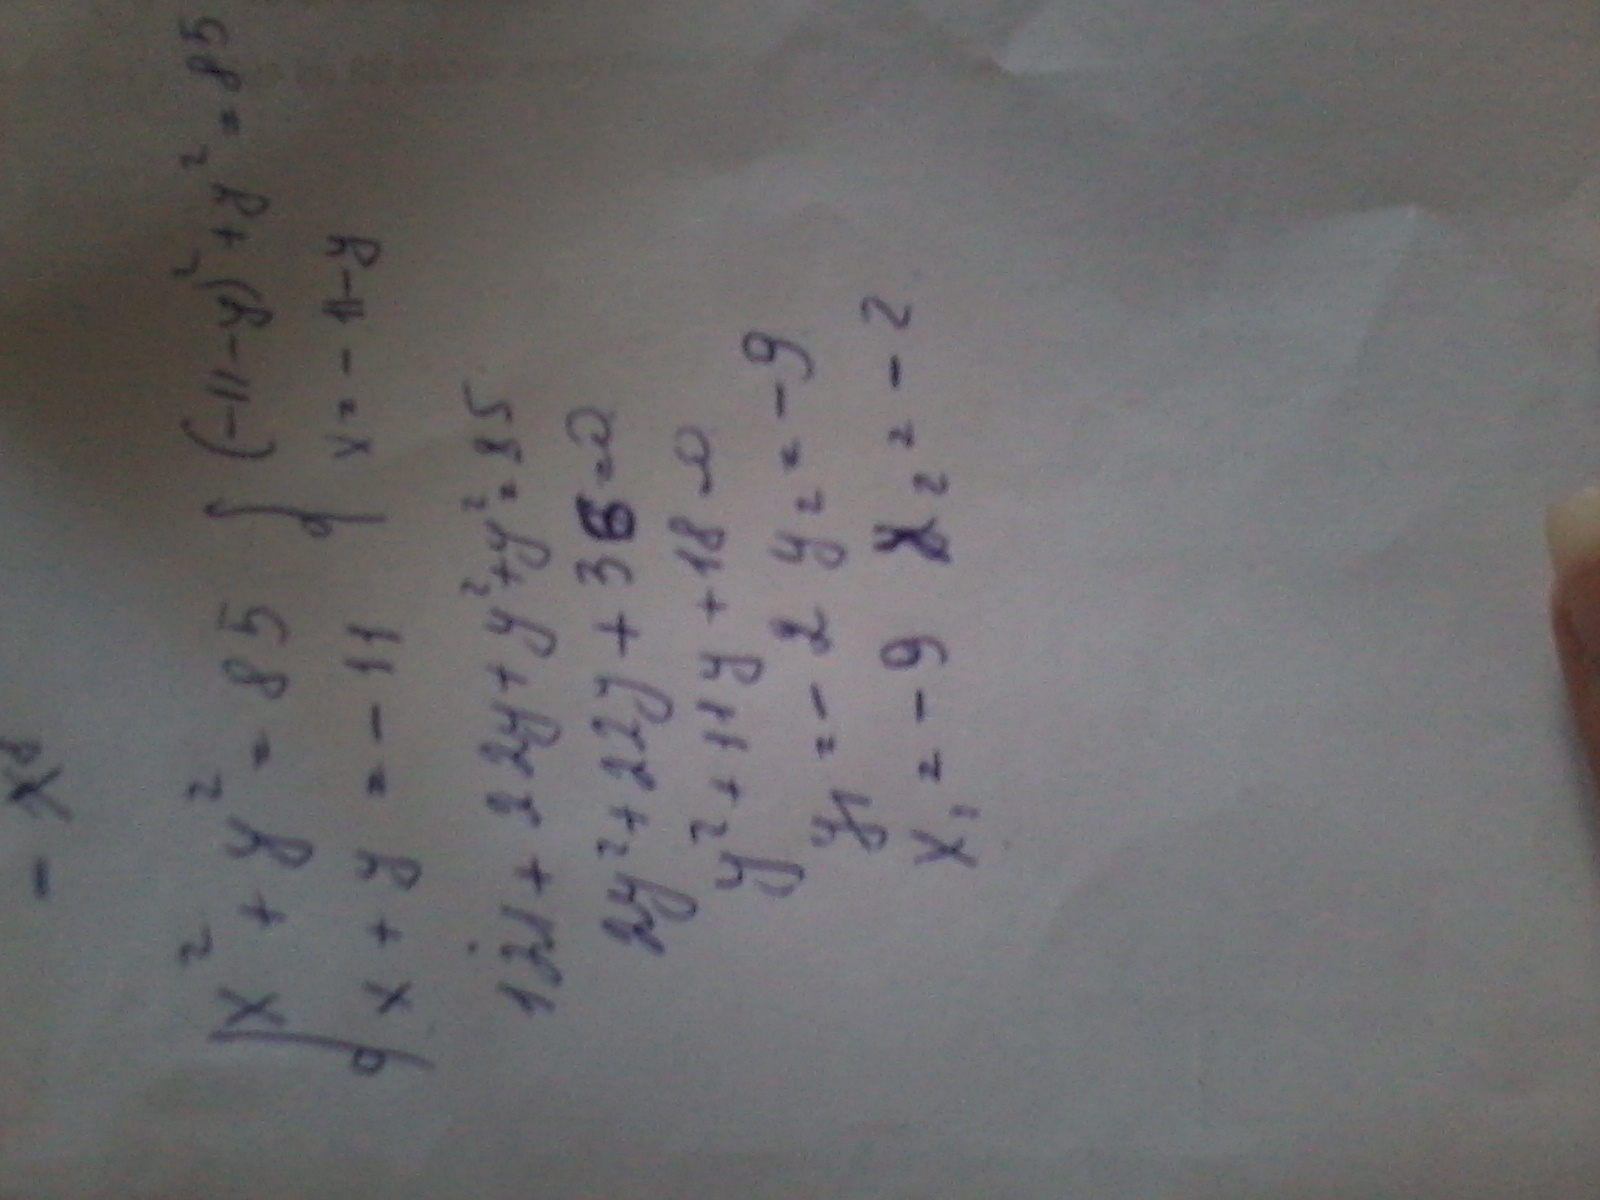 x² + y² = 85 { (-11-y)² + y² = 85
x + y = -11 x = -11-y
121 + 22y + y² + y² = 85
2y² + 22y + 36 = 0
y² + 11y + 18 = 0
y₁ = -2 y₂ = -9
x₁ = -9 x₂ = -2